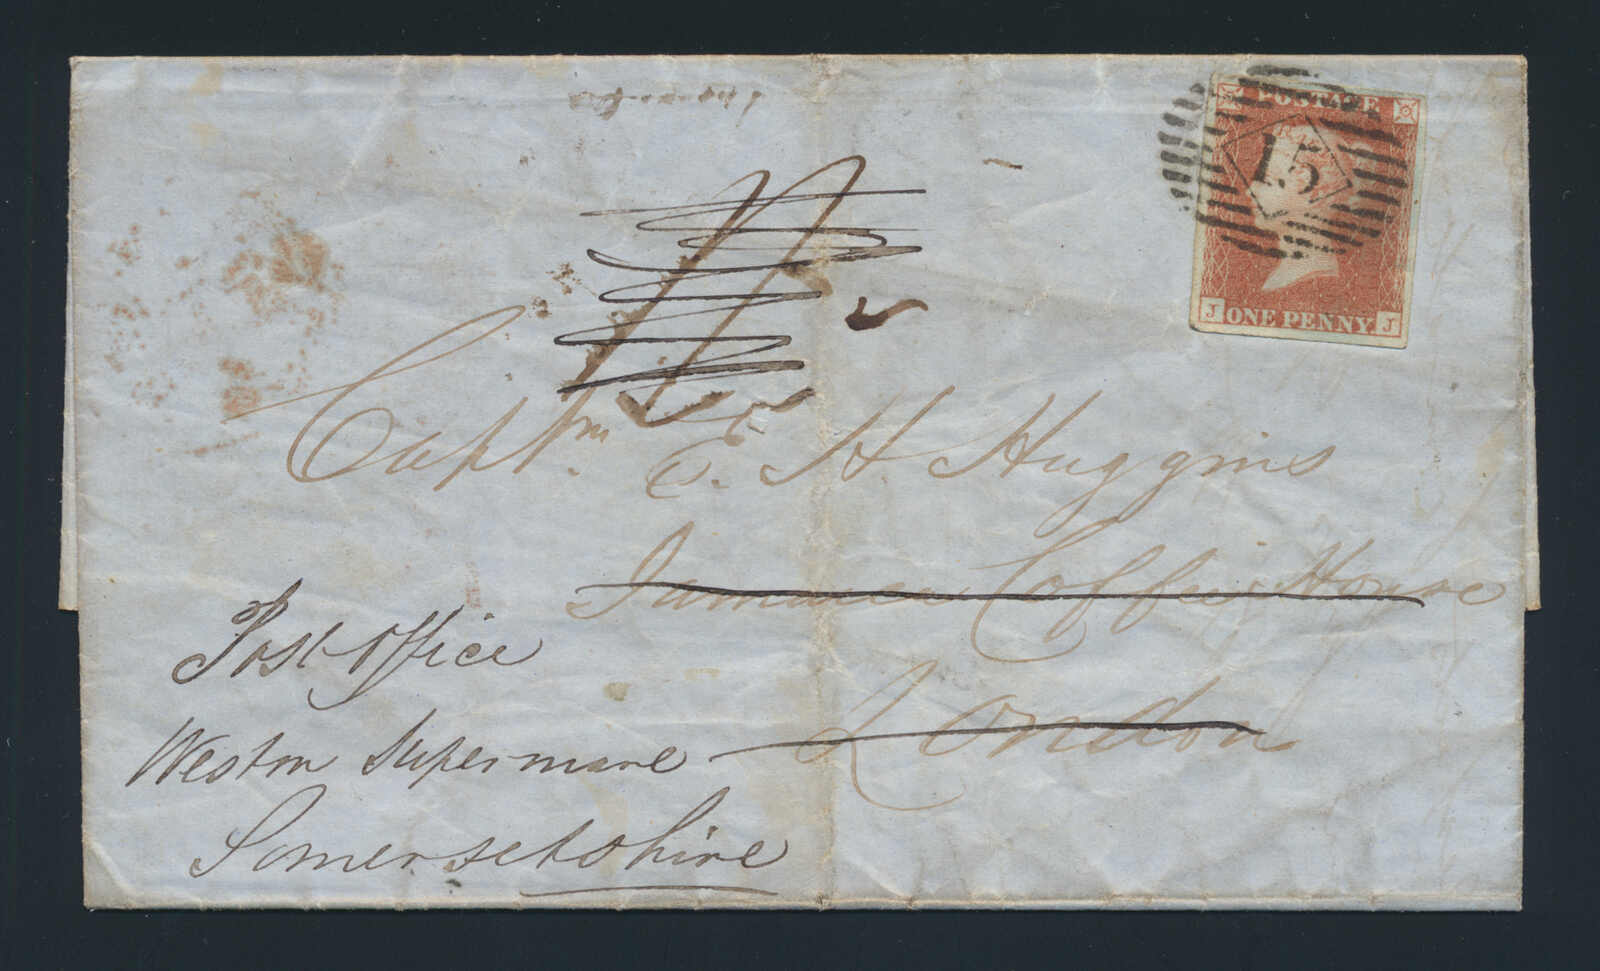 POSTAGE
15
J ONE PENNY J
Captn. E. H Huggins
Jamaica Coffee House
London
Post Office
Weston Supermare
Somersetshire